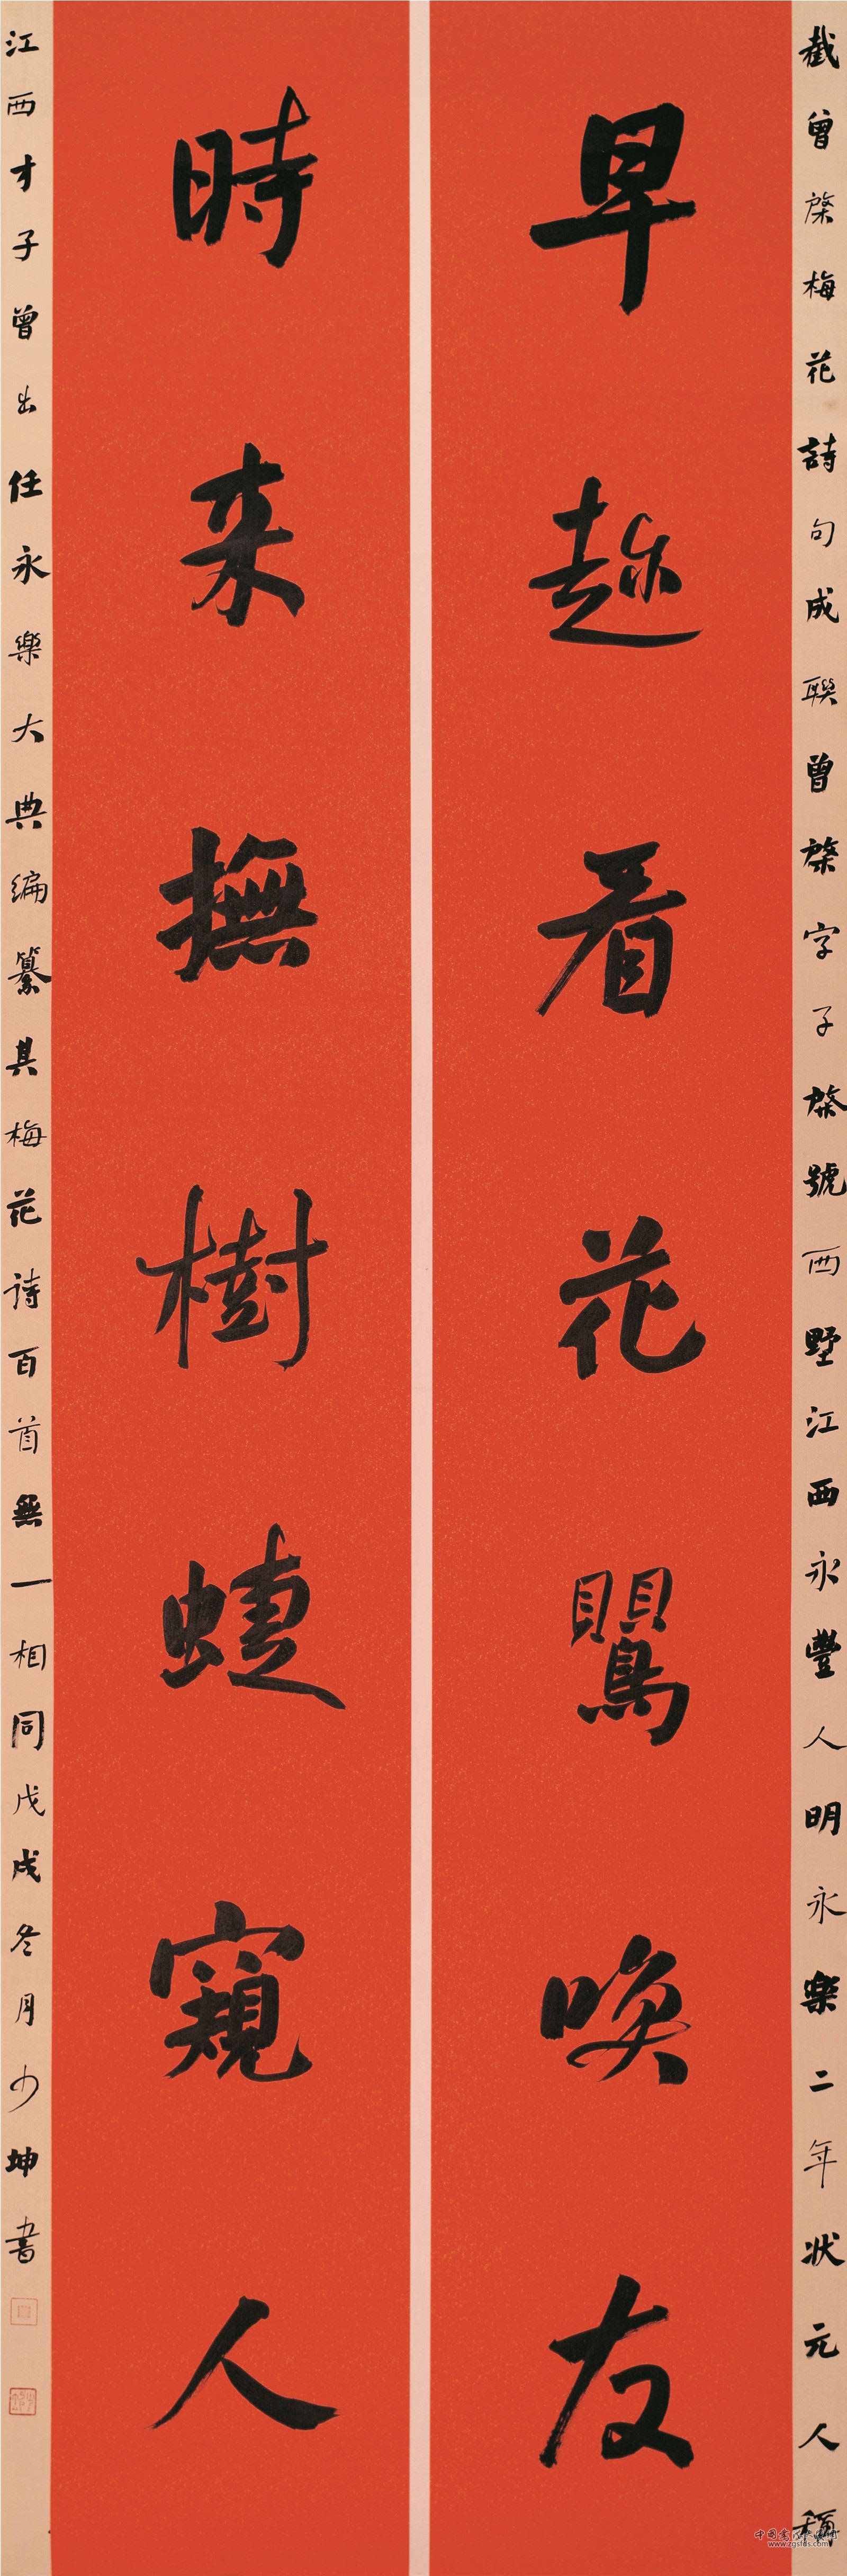 截曾棨梅花詩句成聯曾棨字子棨號西墅江西永豐人明永樂二年状元人稱
早趂看花鸎唤友
時来撫樹蜨窺人
江西才子曾出任永樂大典編纂其梅花诗百首無一相同戊戌冬月少坤書
www.zgsfds.com